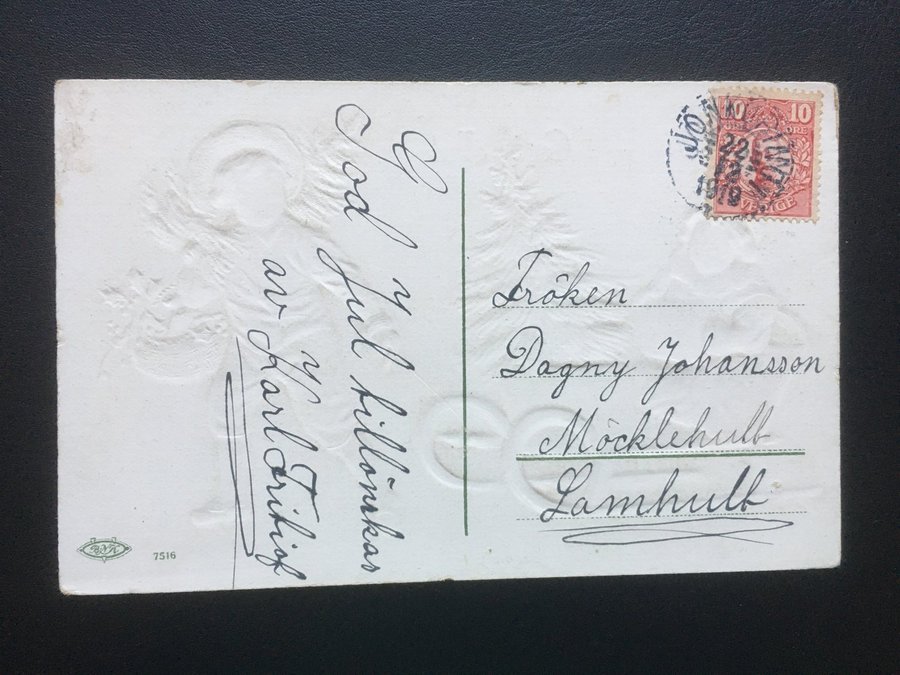 God Jul tillönskas
av Karl Fritiof
7516
10 10
ÖRE
SVERIGE
22
Fröken
Dagny Johansson
Möcklehult
Lamhult